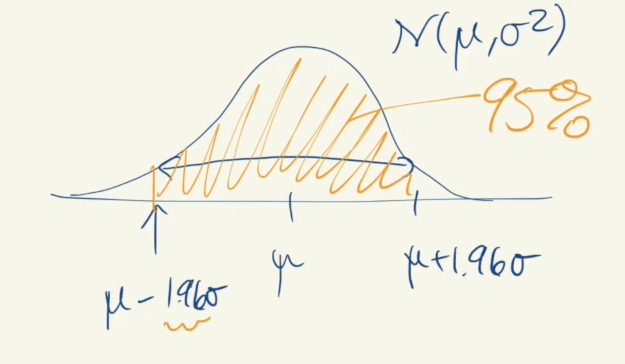 N(μ, σ²)
95%
μ
μ+1.96σ
μ-1.96σ